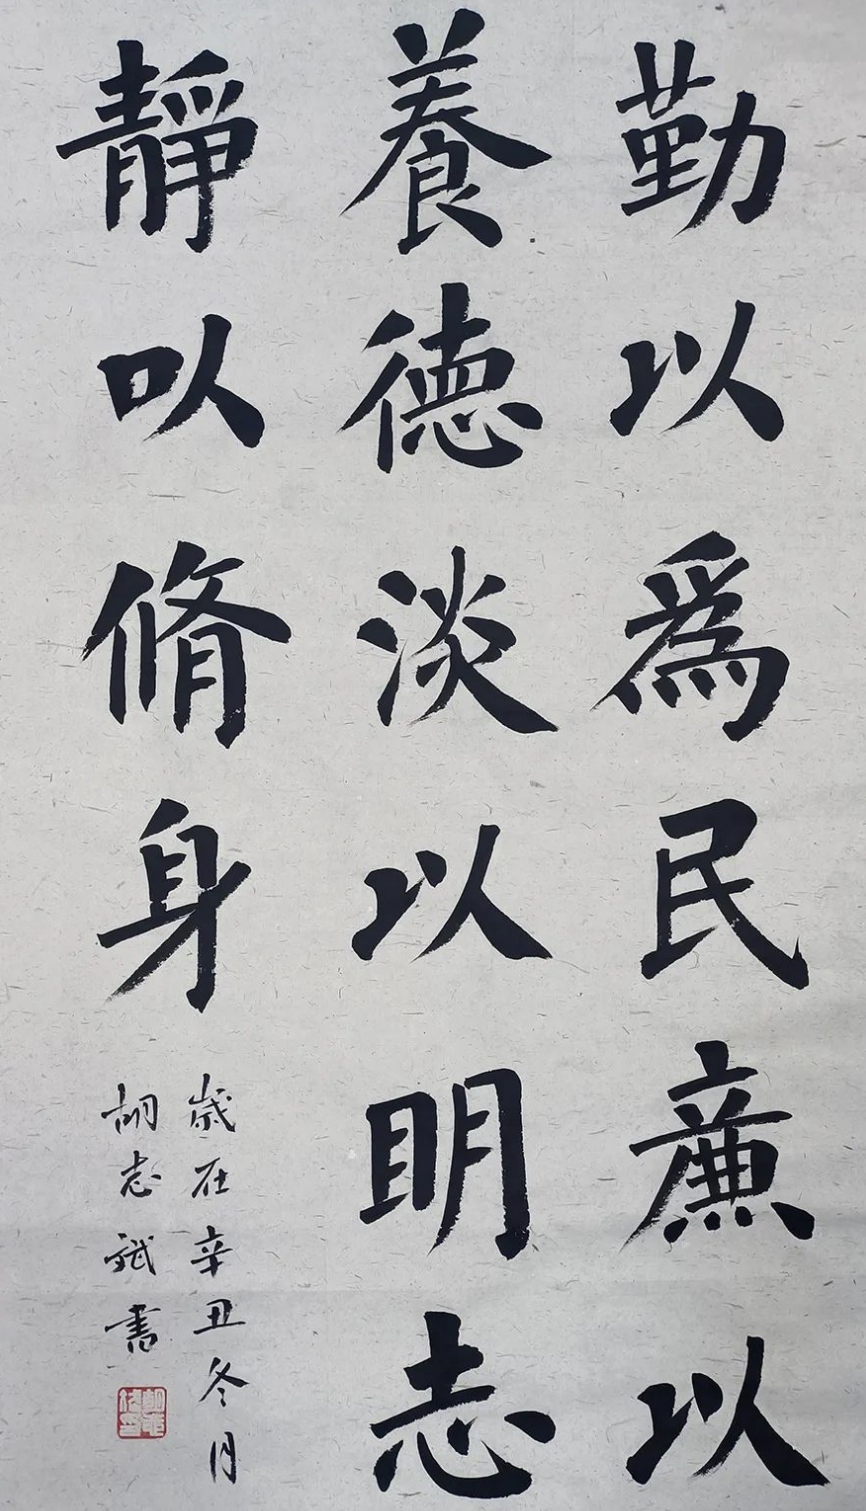 勤以為民廉以
養德淡以明志
靜以脩身
歲在辛丑冬月
胡志斌書